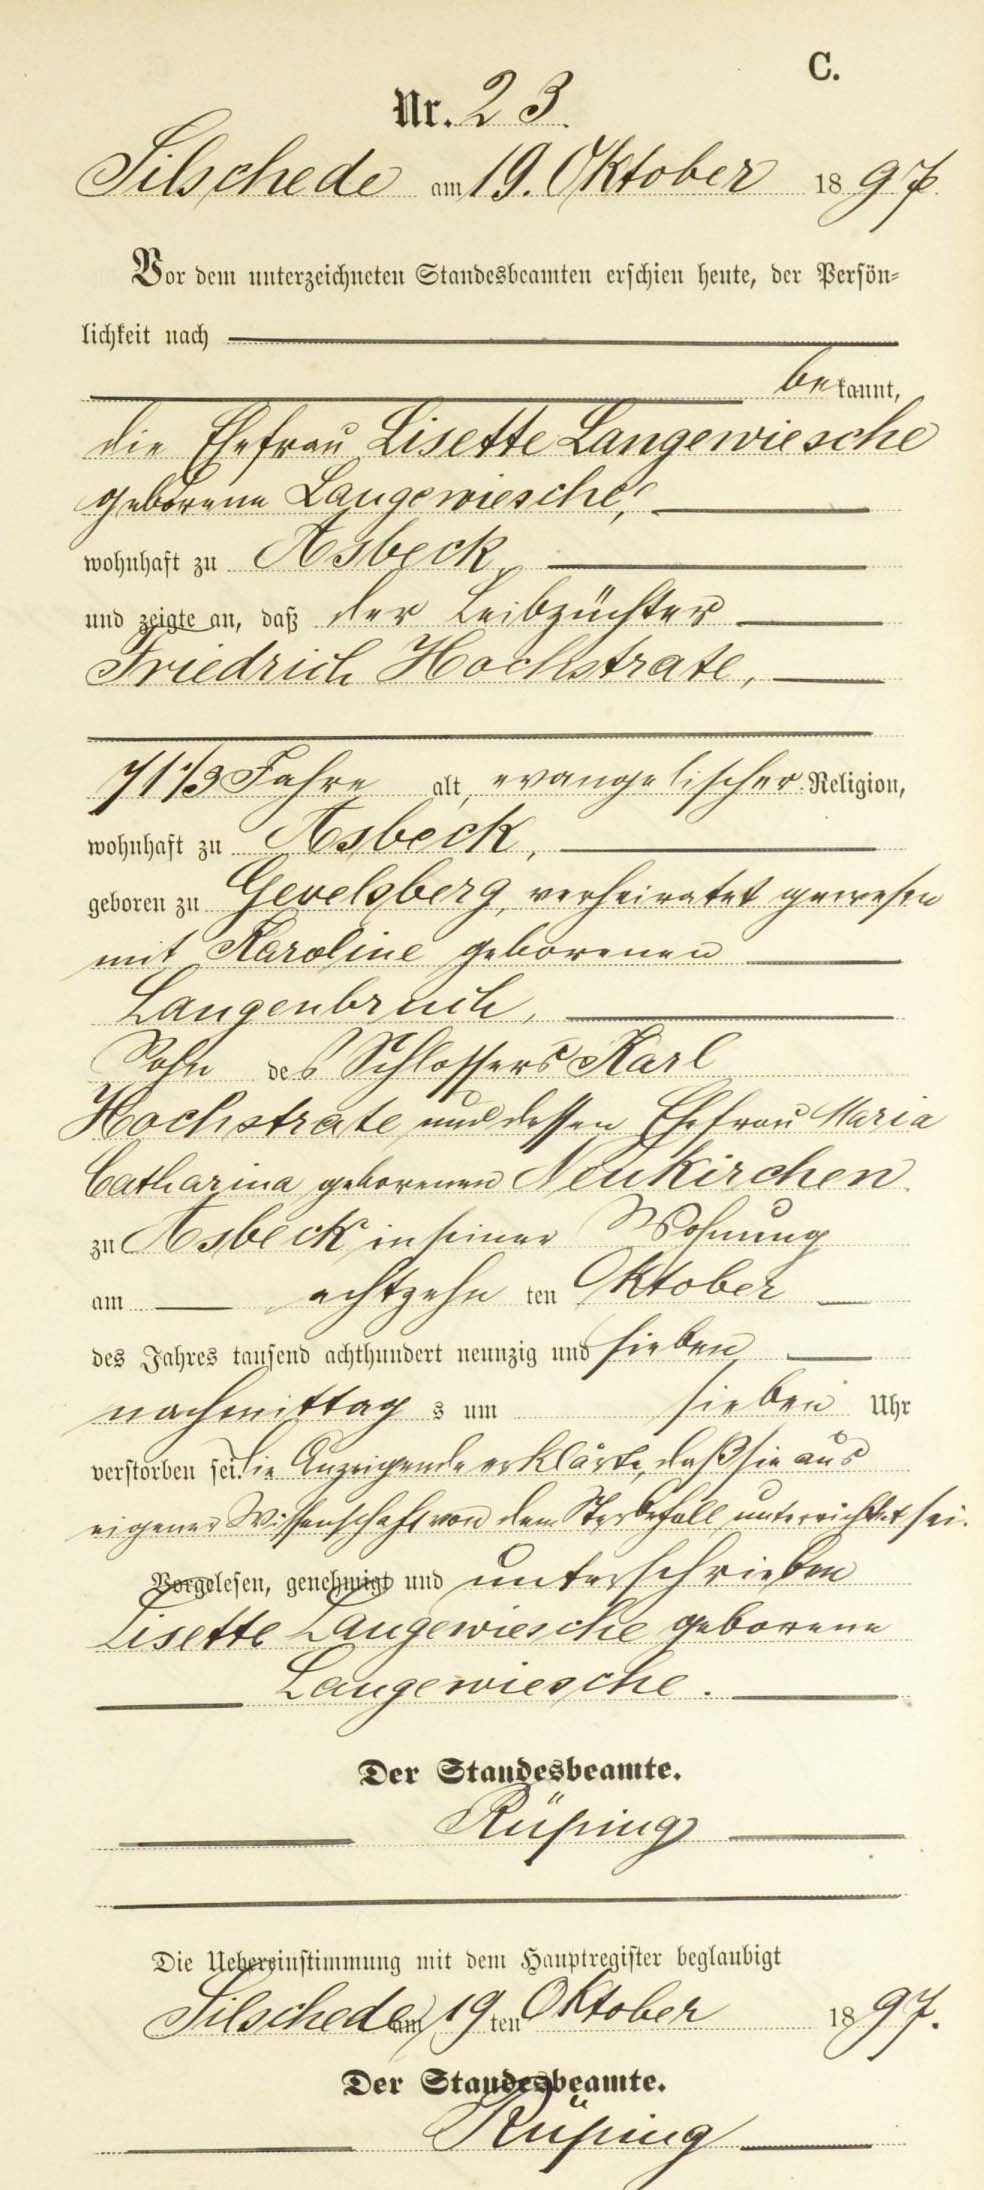 C.
Nr. 23.
Silschede am 19. Oktober 1897.
Vor dem unterzeichneten Standesbeamten erschien heute, der Persön-
lichkeit nach
bekannt,
die Ehefrau Lisette Langewiesche
geborene Langewiesche,
wohnhaft zu Asbeck,
und zeigte an, daß der Leibzüchter
Friedrich Hochstrate,
71 1/3 Jahre alt, evangelischer Religion,
wohnhaft zu Asbeck,
geboren zu Gevelsberg, verheiratet gewesen
mit Karoline geborenen
Langenbruch,
Sohn des Schlossers Karl
Hochstrate und dessen Ehefrau Maria
Catharina geborenen Neukirchen
zu Asbeck in seiner Wohnung
am achtzehn ten Oktober
des Jahres tausend achthundert neunzig und sieben
nachmittags um sieben Uhr
verstorben sei. Die Anzeigende erklärte, daß sie aus
eigener Wissenschaft von dem Sterbefall unterrichtet sei.
Vorgelesen, genehmigt und unterschrieben
Lisette Langewiesche geborene
Langewiesche.
Der Standesbeamte.
Rüping
Die Uebereinstimmung mit dem Hauptregister beglaubigt
Silschede am 19ten Oktober 1897.
Der Standesbeamte.
Rüping